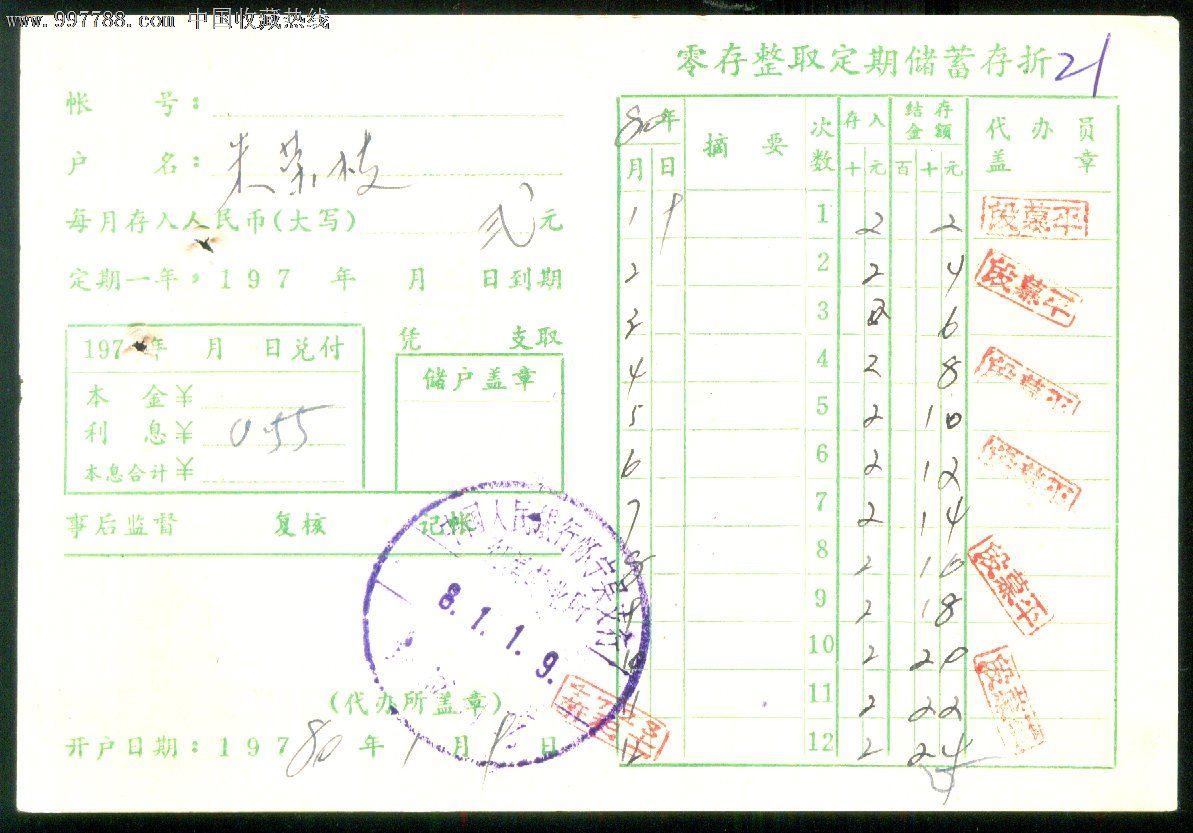 www.997788.com 中国收藏热线
零存整取定期储蓄存折 21
帐 号：
户 名：朱荣枝
每月存入人民币(大写) 弍元
定期一年，197 年 月 日到期
197 年 月 日兑付
本 金¥
利 息¥ 0.55
本息合计¥
凭 支取
储户盖章
事后监督 复核 记帐
8.1.1.9.
(代办所盖章)
开户日期：197 80 年 1 月 9 日
80年 摘 要 次数 存入 结存金额 代办员盖章
月 日 十 元 百 十 元
1 9 1 2 2 段慕平
2 2 2 4 段慕平
3 3 2 6
4 4 2 8 段慕平
5 5 2 10
6 6 2 12 段慕平
7 7 2 14
8 8 2 16 段慕平
9 9 2 18
10 10 2 20 段慕平
11 11 2 22
12 12 2 24